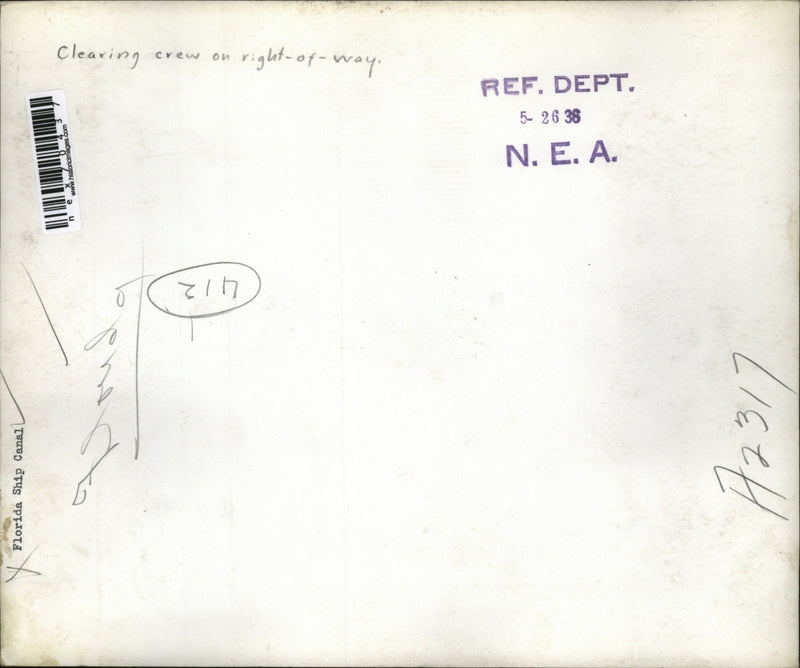 Clearing crew on right-of-way.
REF. DEPT.
5- 26 36
N. E. A.
nex70437
www.historicimages.com
412
A2317
Florida Ship Canal